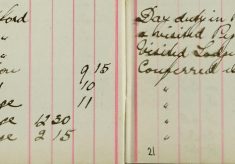 ford
"
"
on 9 15
" 10
" 11
ge 12 30
ge 2 15
Day duty in
a visited
Visited Lodge
Conferred
"
"
"
"
21